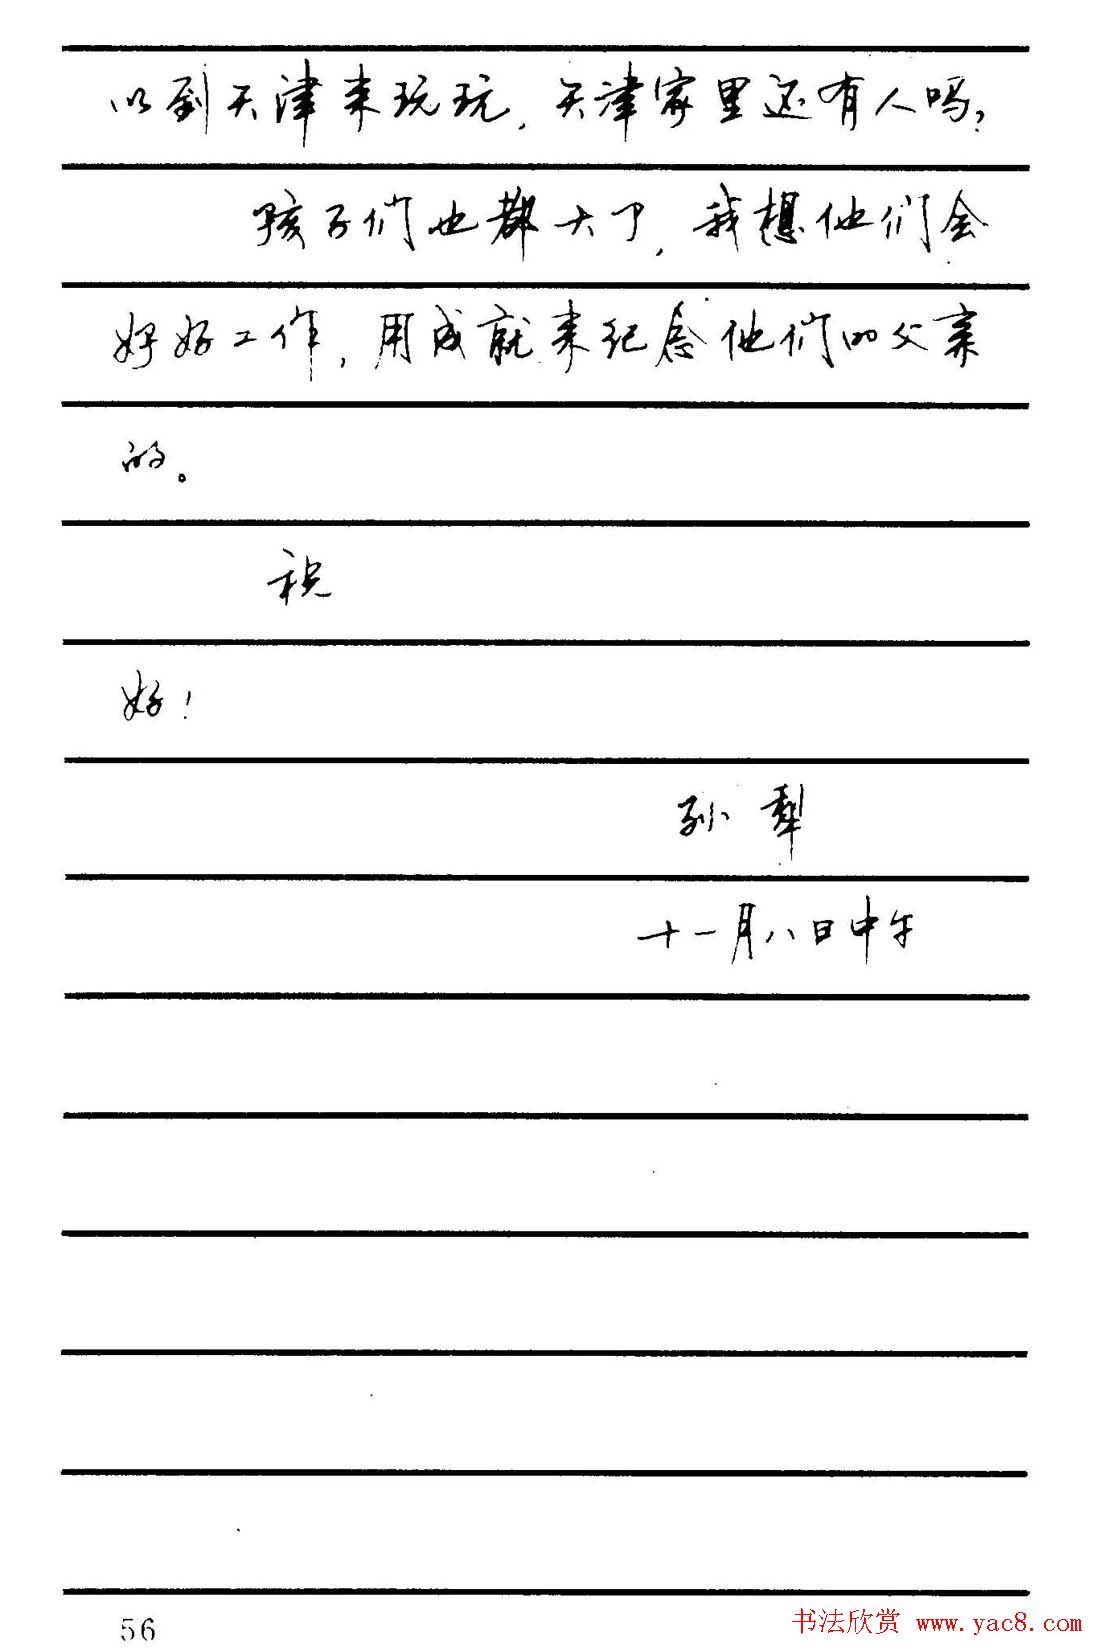 以到天津来玩玩，天津家里还有人吗？
孩子们也都大了，我想他们会
好好工作，用成就来纪念他们的父亲
的。
祝
好！
孙犁
十一月八日中午
56
书法欣赏 www.yac8.com